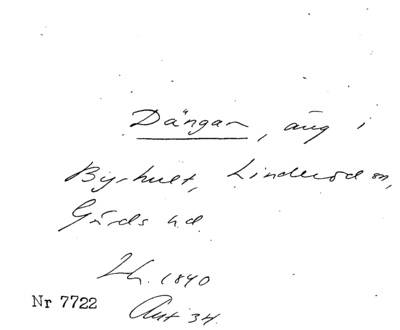 Dängan, äng i
Byrhult, Linderöd sn,
Gärds hd.
Lh. 1840
Akt 34.
Nr 7722